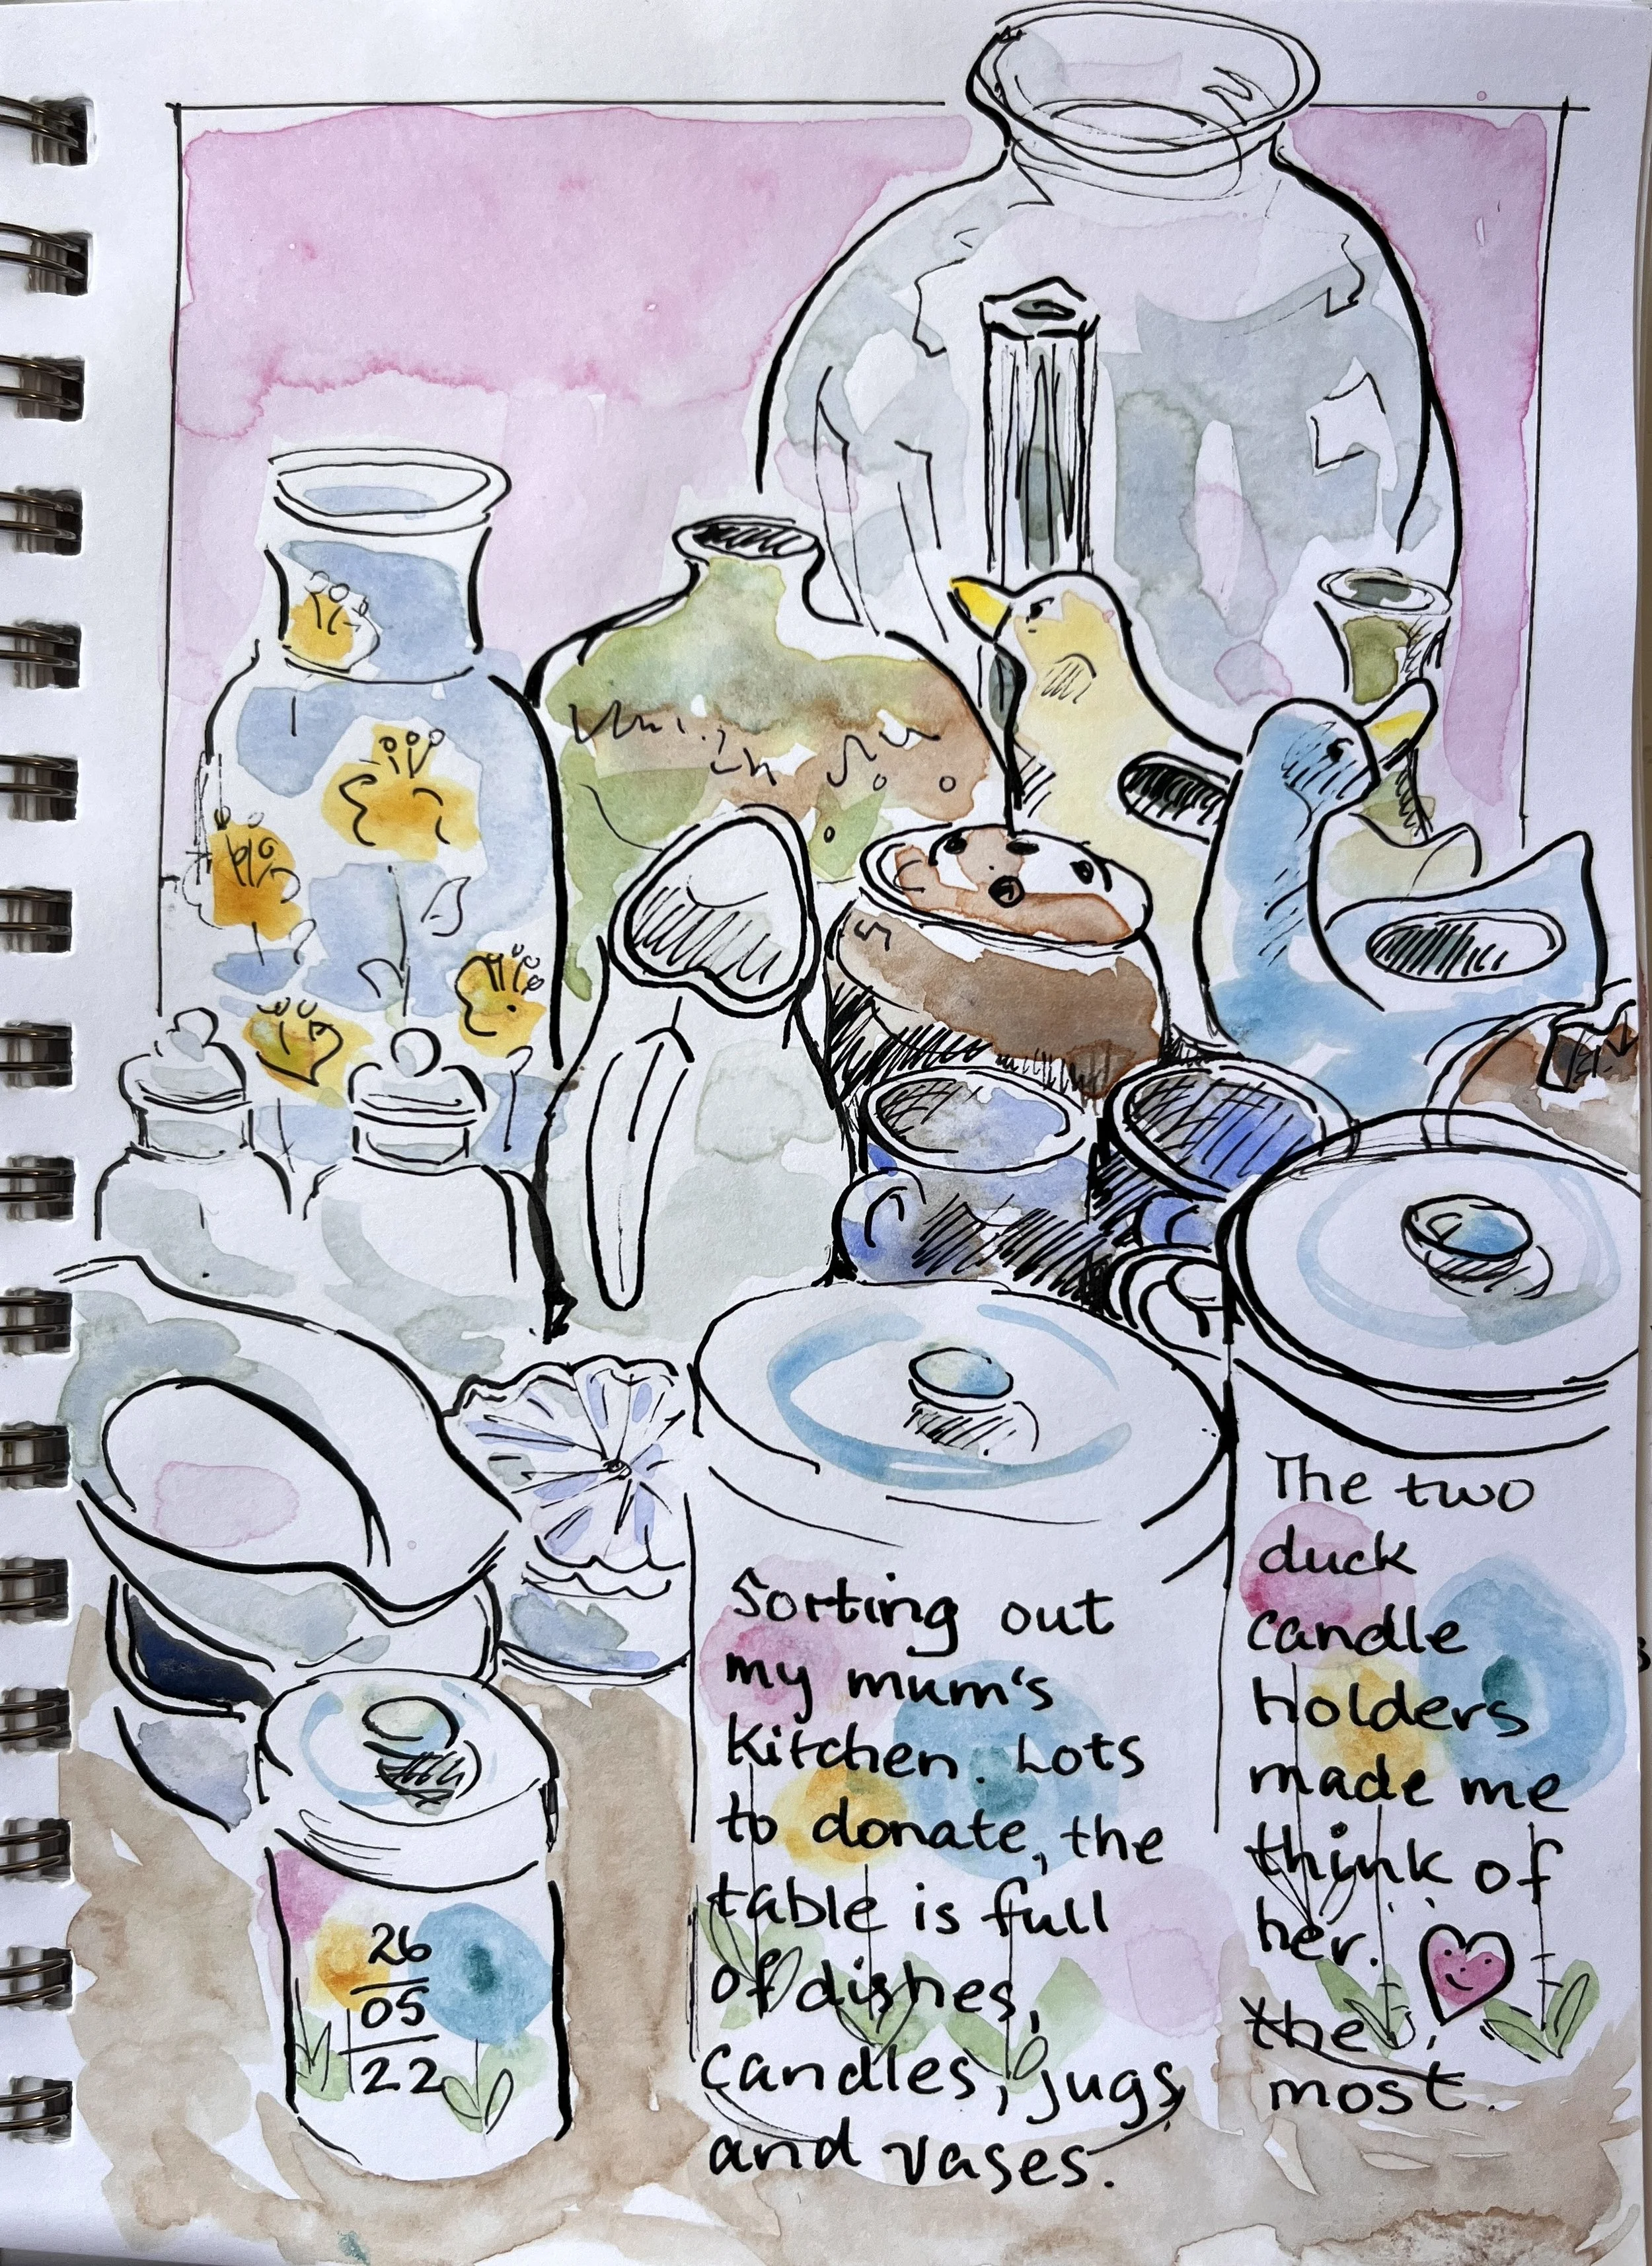 Sorting out
my mum's
Kitchen. Lots
to donate, the
table is full
of dishes,
candles, jugs
and vases.
The two
duck
candle
holders
made me
think of
her.
the
most.
26
05
22